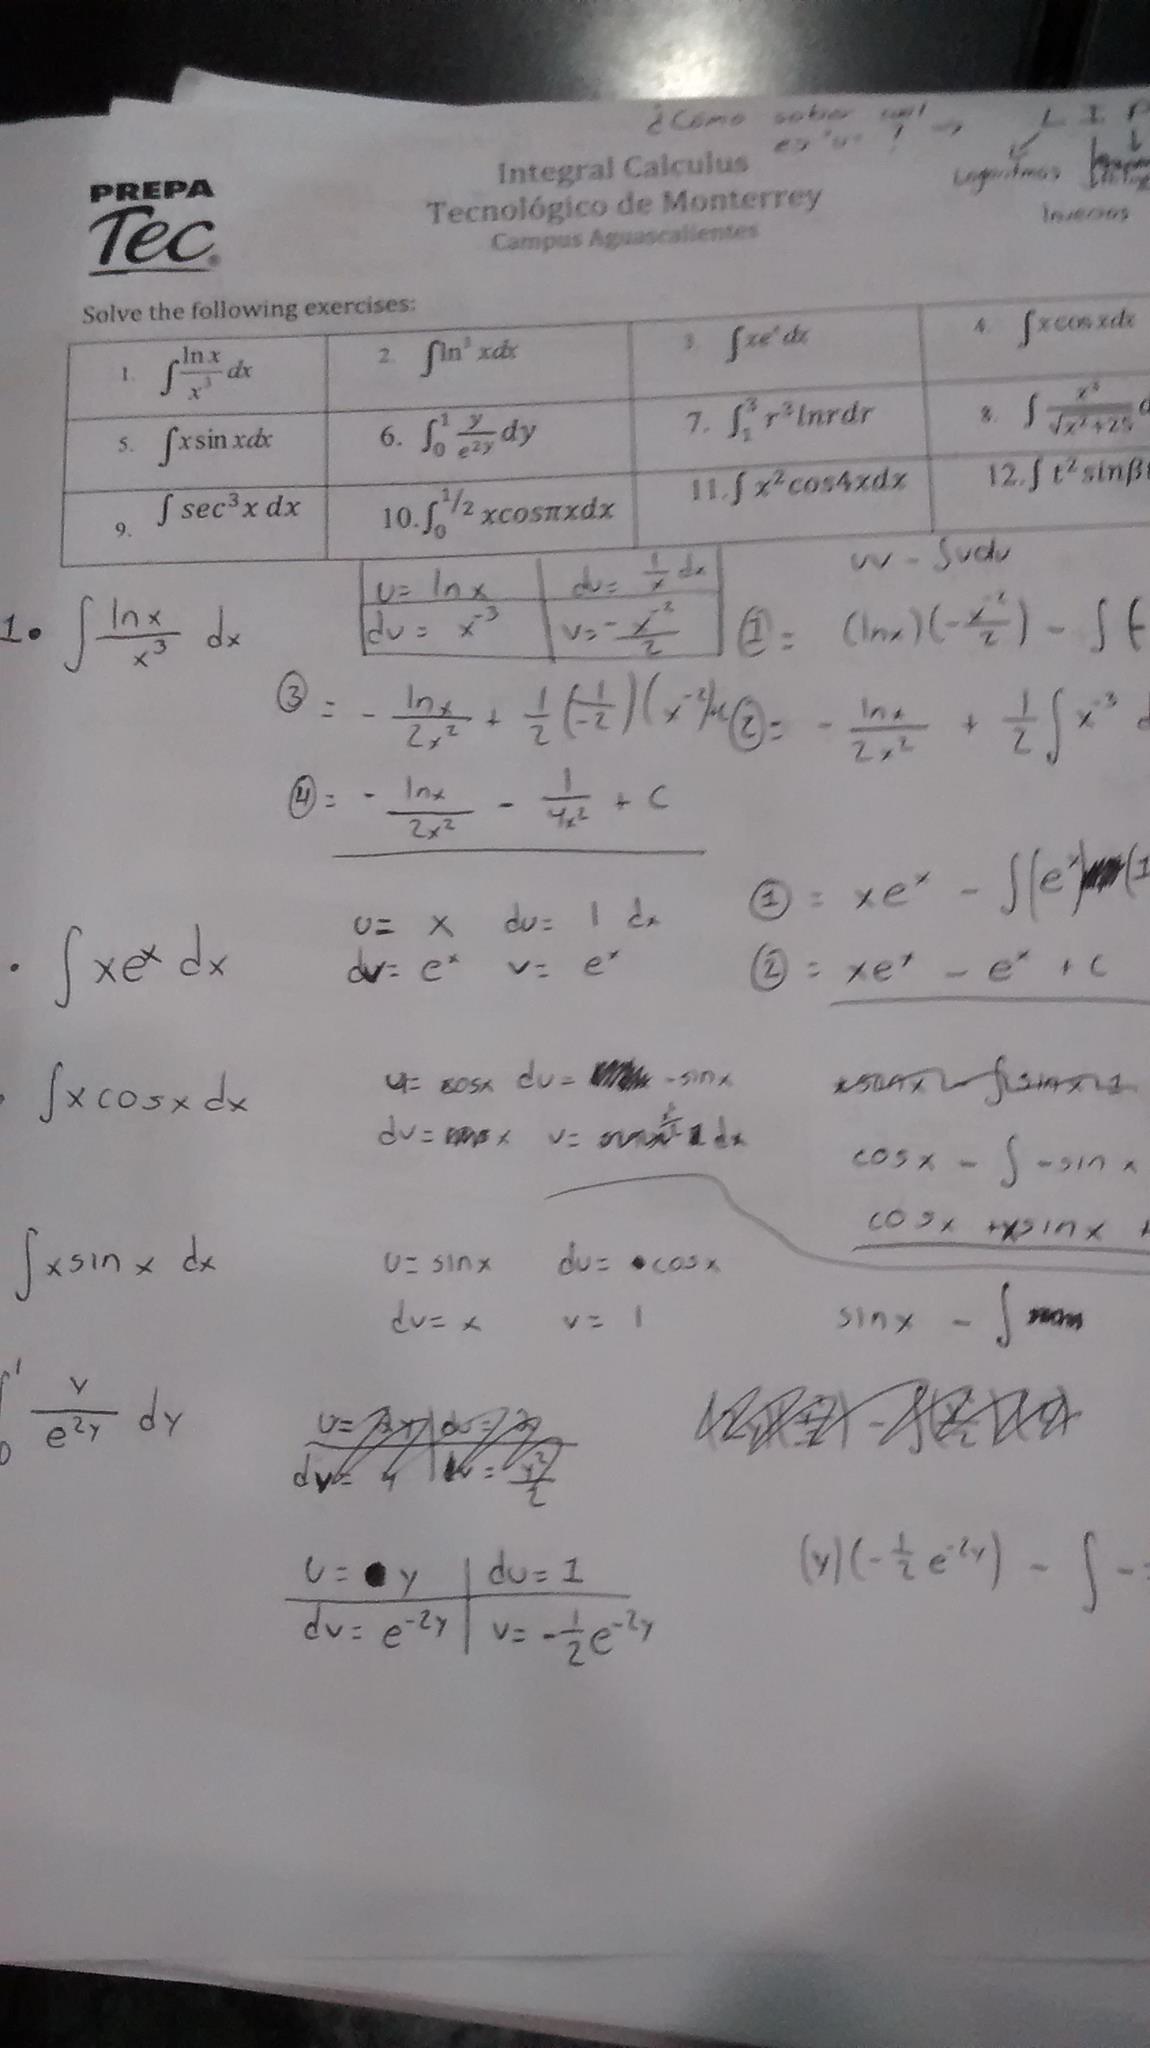 ¿Cómo saber cual → L I P
es "u" ?
Logaritmos
Inversas
PREPA
Tec
Integral Calculus
Tecnológico de Monterrey
Campus Aguascalientes
Solve the following exercises:
1. ∫ ln x / x³ dx 2. ∫ln² xdx 3. ∫xeˣdx 4. ∫x cos xdx
5. ∫x sin xdx 6. ∫₀¹ y/e²ʸ dy 7. ∫₁³ r³lnrdr 8. ∫ x³/√x²+25
9. ∫ sec³x dx 10.∫₀^1/2 xcosπxdx 11.∫ x²cos4xdx 12.∫ t²sinβt
uv - ∫vdu
1. ∫ lnx / x³ dx
u= lnx du= 1/x dx
dv= x⁻³ v= - x⁻²/2
① = (lnx)(-x⁻²/2) - ∫(-
② = - lnx/2x² + 1/2 ∫ x⁻³
③ = - lnx/2x² + 1/2 (1/-2)(x⁻²)
④ = - lnx/2x² - 1/4x² + C
∫ xeˣ dx
u= x du= 1 dx
dv= eˣ v= eˣ
① = xeˣ - ∫(eˣ)(1
② = xeˣ - eˣ + C
∫x cosx dx
u= cosx du= -sinx
dv= x v= 1 dx
xsinx - ∫sinx·1
cosx - ∫ -sinx
cosx +xsinx +
∫xsinx dx
u= sinx du= cosx
dv= x v= 1
sinx - ∫
∫₀¹ y/e²ʸ dy
dv= y v= y²/2
u= y du=1
dv= e⁻²ʸ v= -1/2 e⁻²ʸ
(y)(-1/2 e⁻²ʸ) - ∫ -